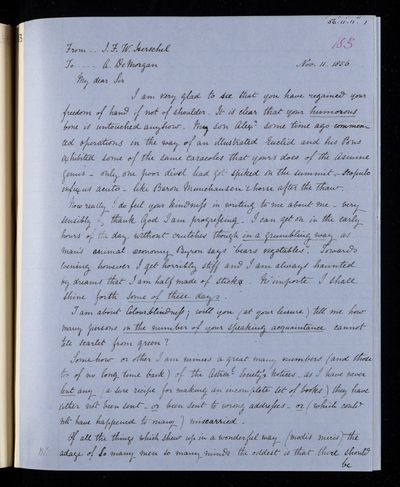 56.11.11. 1
185
From .. J. F. W. Herschel
To .... A. De Morgan Nov. 11. 1856
My dear Sir
I am very glad to see that you have regained your
freedom of hand if not of shoulder. It is clear that your humorous
bone is untouched anyhow. My son Alexr some time ago commenc
ed operations in the way of an illustrated Euclid and his Pons
exhibited some of the same caracoles that yours does of the asinine
genus - only one poor divel had got spiked on the summit - Scopulo
infixus acuto - like Baron Munchausen's horse after the thaw.
Now really I do feel your kindness in writing to me about me - very
sensibly & thank God I am progressing. I can get on in the early
hours of the day without crutches though in a grumbling way as
man's animal economy Byron says "bears vegetables". Towards
evening however I get horribly stiff and I am always haunted
by dreams that I am half made of sticks. N'importe I shall
shine forth some of these days.
I am about Colourblindness; will you (at your leisure) tell me how
many persons in the number of your speaking acquaintance cannot
tell scarlet from green?
Somehow or other I am minus a great many numbers (and those
of no long time back) of the Astron. Society's notices, as I have never
lent any (a sure recipe for making an incomplete set of books) they have
either not been sent - or been sent to wrong addresses - or (which could
not have happened to many) miscarried.
Of all the things which shew up in a wonderful way (modis miris) the
adage of So many men so many minds the oddest is that there should
be